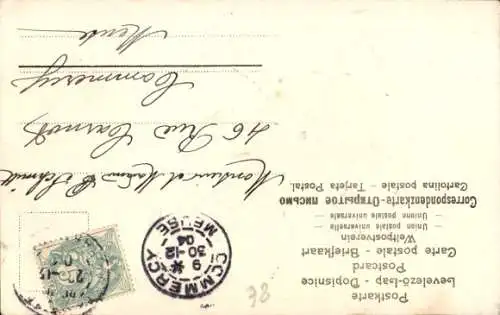 Postkarte
Levelező-lap - Dopisnice
Postcard
Carte postale - Briefkaart
Weltpostverein
Union postale universelle
Unione postale universale
Correspondenzkarte - Открытое письмо
Cartolina postale - Tarjeta Postal.
COMMERCY
9
30-12
04
MEUSE
Monsieur et Madame Schmitt
46 Rue Carnot
Commercy
Meuse
78